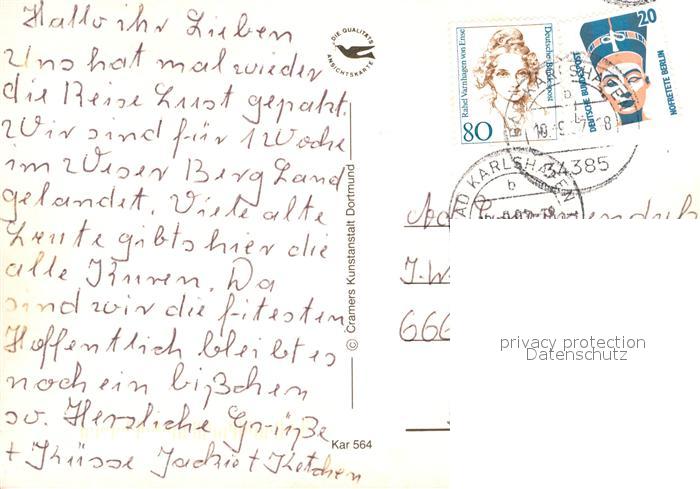 Hallo ihr Lieben
Uns hat mal wieder
die Reise Lust gepakt.
Wir sind für 1 Woche
im Weser Berg Land
gelandet. Viele alte
Leute gibts hier die
alle Kuren. Da
sind wir die fitesten
Hoffentlich bleibt es
noch ein bißchen
so. Herzliche Grüße
+ Küsse Jackie +
DIE QUALITÄTS
ANSICHTSKARTE
© Cramers Kunstanstalt Dortmund
Kar 564
Rahel Varnhagen von Ense
Deutsche Bundespost
80
20
DEUTSCHE BUNDESPOST
NOFRETETE BERLIN
b
34385
BAD KARLSHAFEN
b
666
privacy protection
Datenschutz